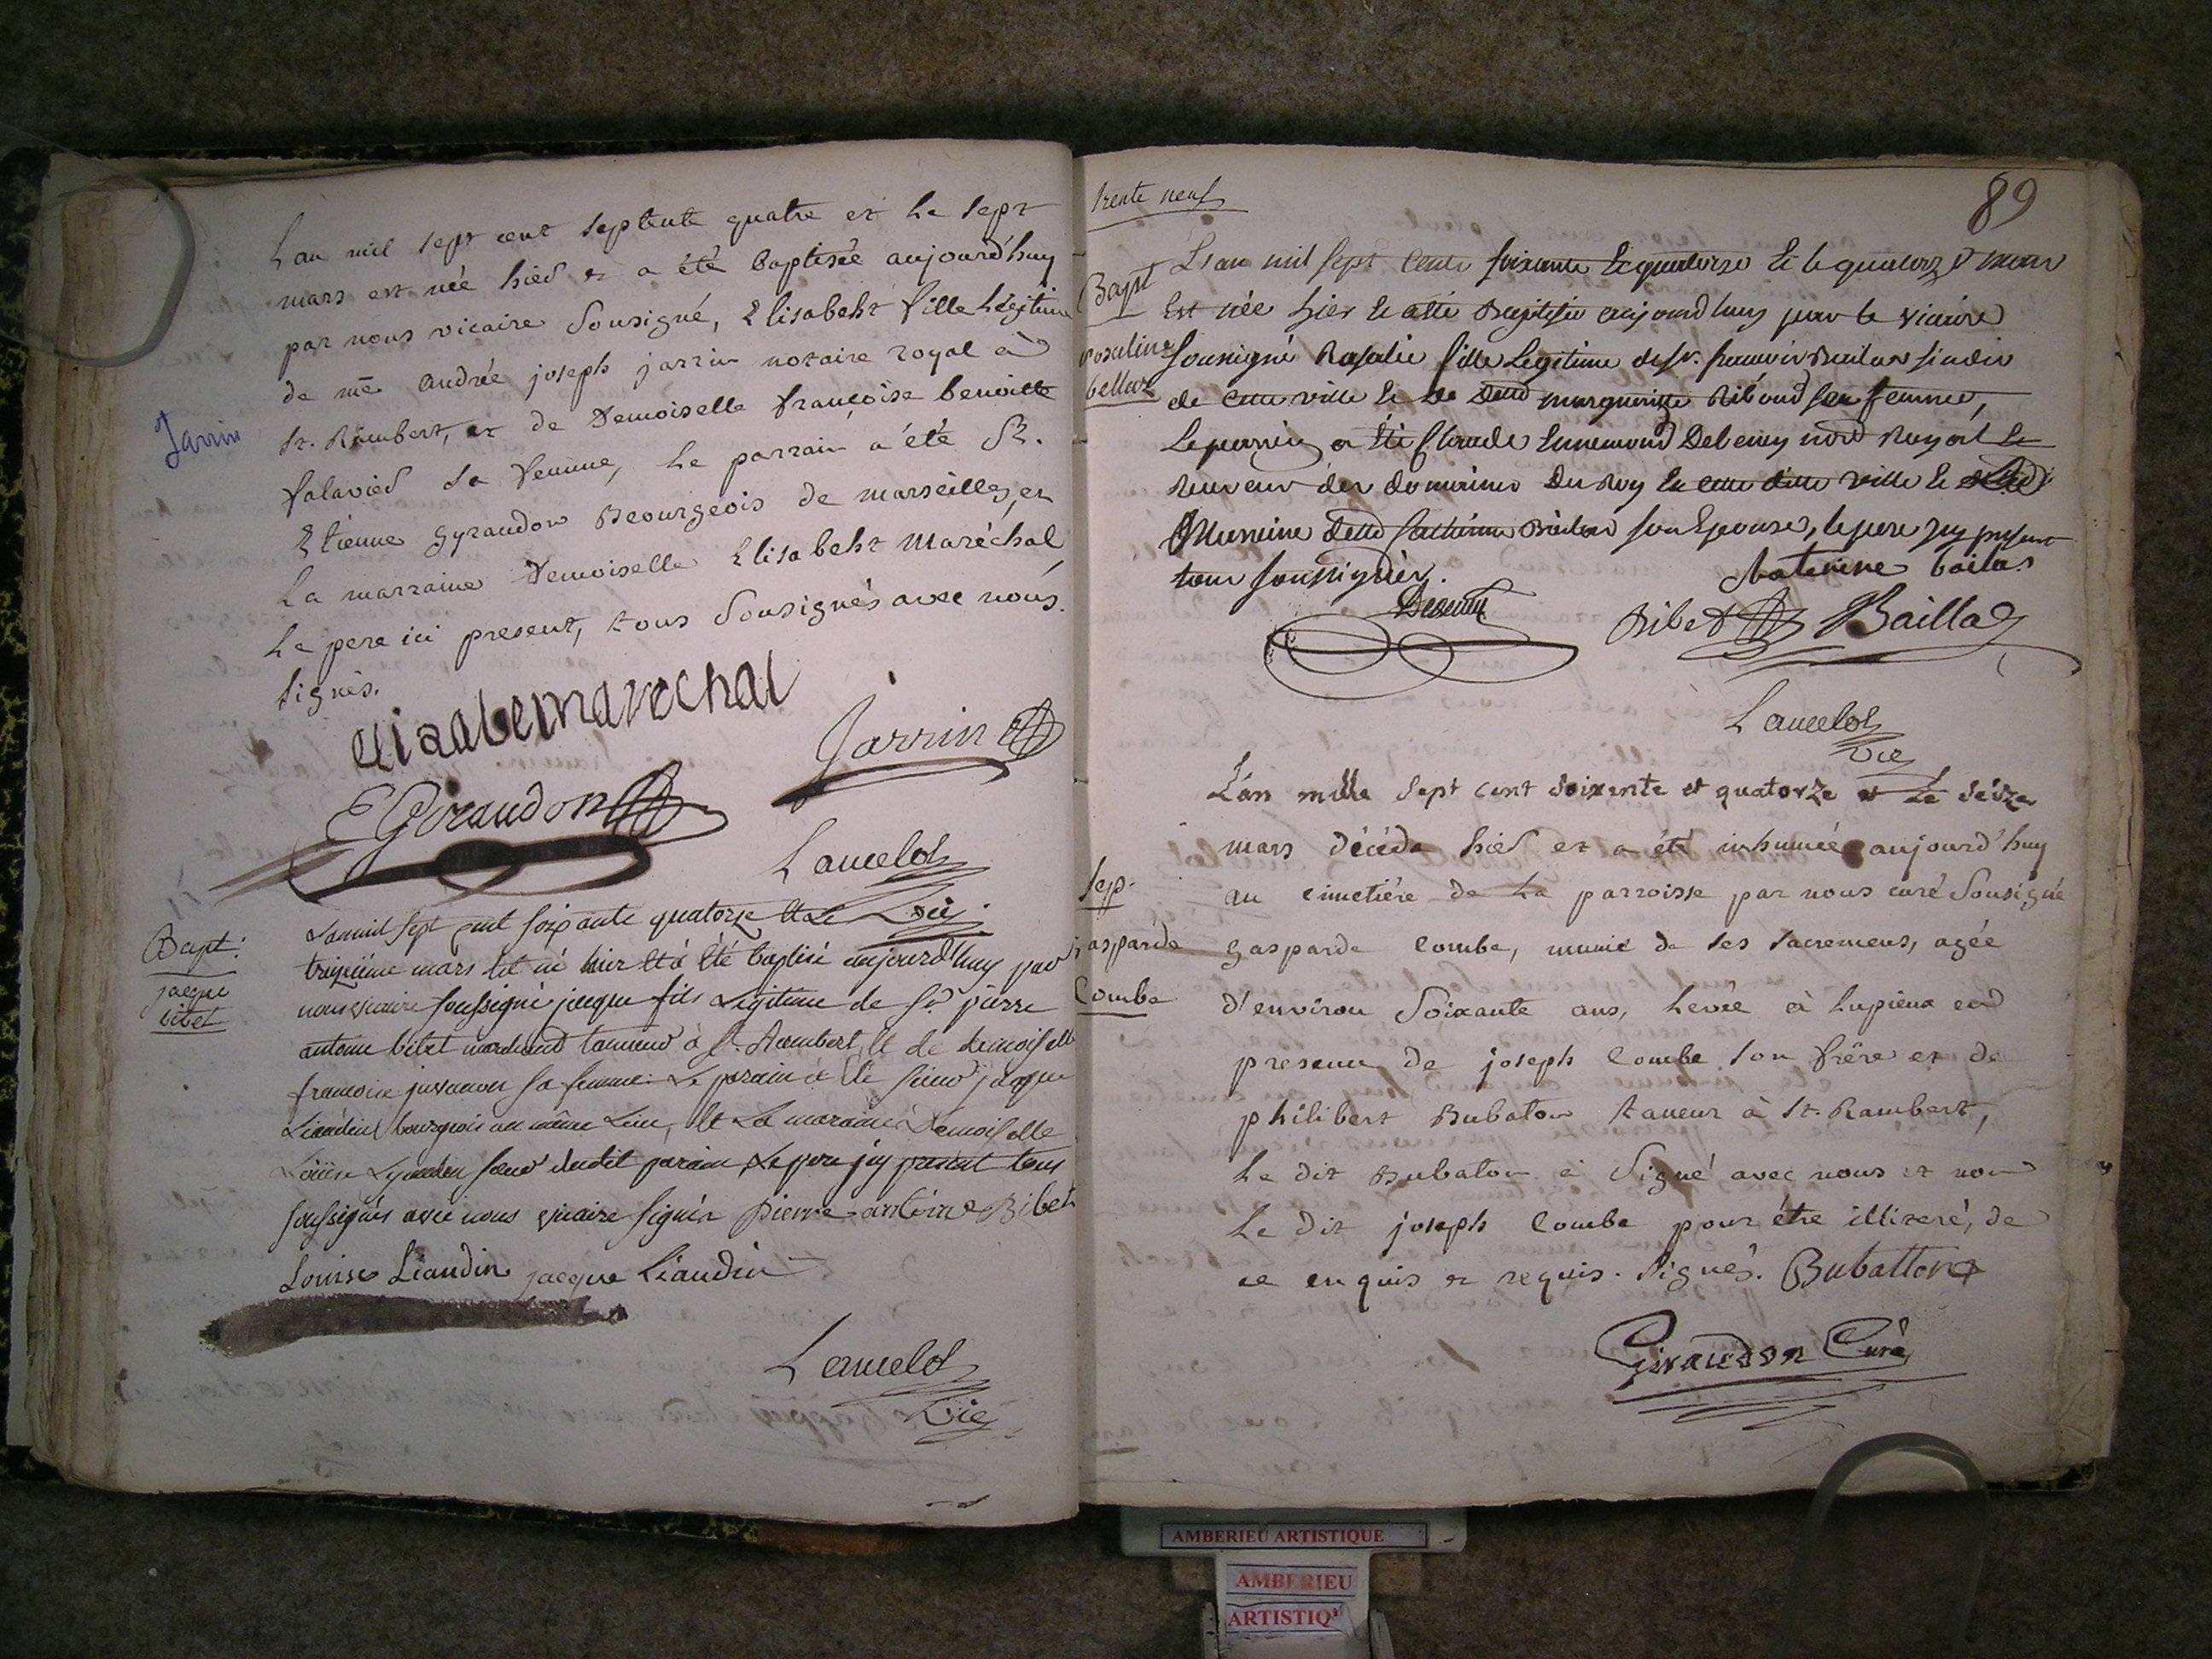 L'an mil sept cent septente quatre et le sept
mars est née hier et a été baptisée aujourd'huy
par nous vicaire sousigné, Elisabeht fille légitime
de me andrée joseph jarrin notaire royal à
Jarrin
St. Rambert, et de Demoiselle françoise benoitte
falavier sa femme, le parrain a été Sr.
Etienne gyraudon Bourgeois de marseille, et
La marraine Demoiselle Elisabeht Maréchal,
le pere ici present, tous sousignés avec nous.
signés.
Elisabe marechal
Jarrin
E Giraudon
Lancelot
vic
Bapt:
jacque
bibet
L'an mil sept cent soixante quatorze et le
treizieme mars est né hier et a été baptisé aujourd'huy par
nous vicaire soussigné jacque fils Legitime de Sr. pierre
antoine bibet marchand tanneur à St. Rambert et de demoiselle
francoise sa femme. Le parain a été sieur jacque
Liaudin bourgeois au même Lieu, et La maraine Demoiselle
Louise soeur dudit parain Le pere jcy present tous
soussignés avec nous vicaire signés pierre antoine Bibet
Louise Liaudin jacque Liaudin
Lancelot
Vic
trente neuf
89
Bapt
L'an mil sept cent soixante et quatorze et le quatorze mars
Est née hier et a été Baptisée aujourd'huy par le vicaire
soussigné Rosalie fille Legitime de Sr. francois Baillas sindic
de cette ville et de marguerite Riboud sa femme,
Le parrain a été Claude Ennemond Debeney Royal et
Receveur des domaines Du Roy en cette ditte ville et
Marraine catherine Baillas son Epouse, le pere jcy present
tous soussignés.
Catherine bailas
Debeney
Ribet
Baillas
Lancelot
Vic
Sep.
gasparde
Combe
L'an mille sept cent soixente et quatorze et le seize
mars décéda hier et a été inhumée aujourd'huy
au cimetiére de la parroisse par nous curé sousigné
gasparde Combe, munie de ses sacremens, agée
d'environ soixante ans, levée à lupieux en
presence de joseph Combe son frère et de
philibert Bubaton taneur à St. Rambert,
le dit Bubaton a signé avec nous et non
le dit joseph Combe pour être illiteré, de
ce enquis et requis. signés. Bubatton
Giraudon Curé
AMBERIEU ARTISTIQUE
AMBERIEU
ARTISTIQ